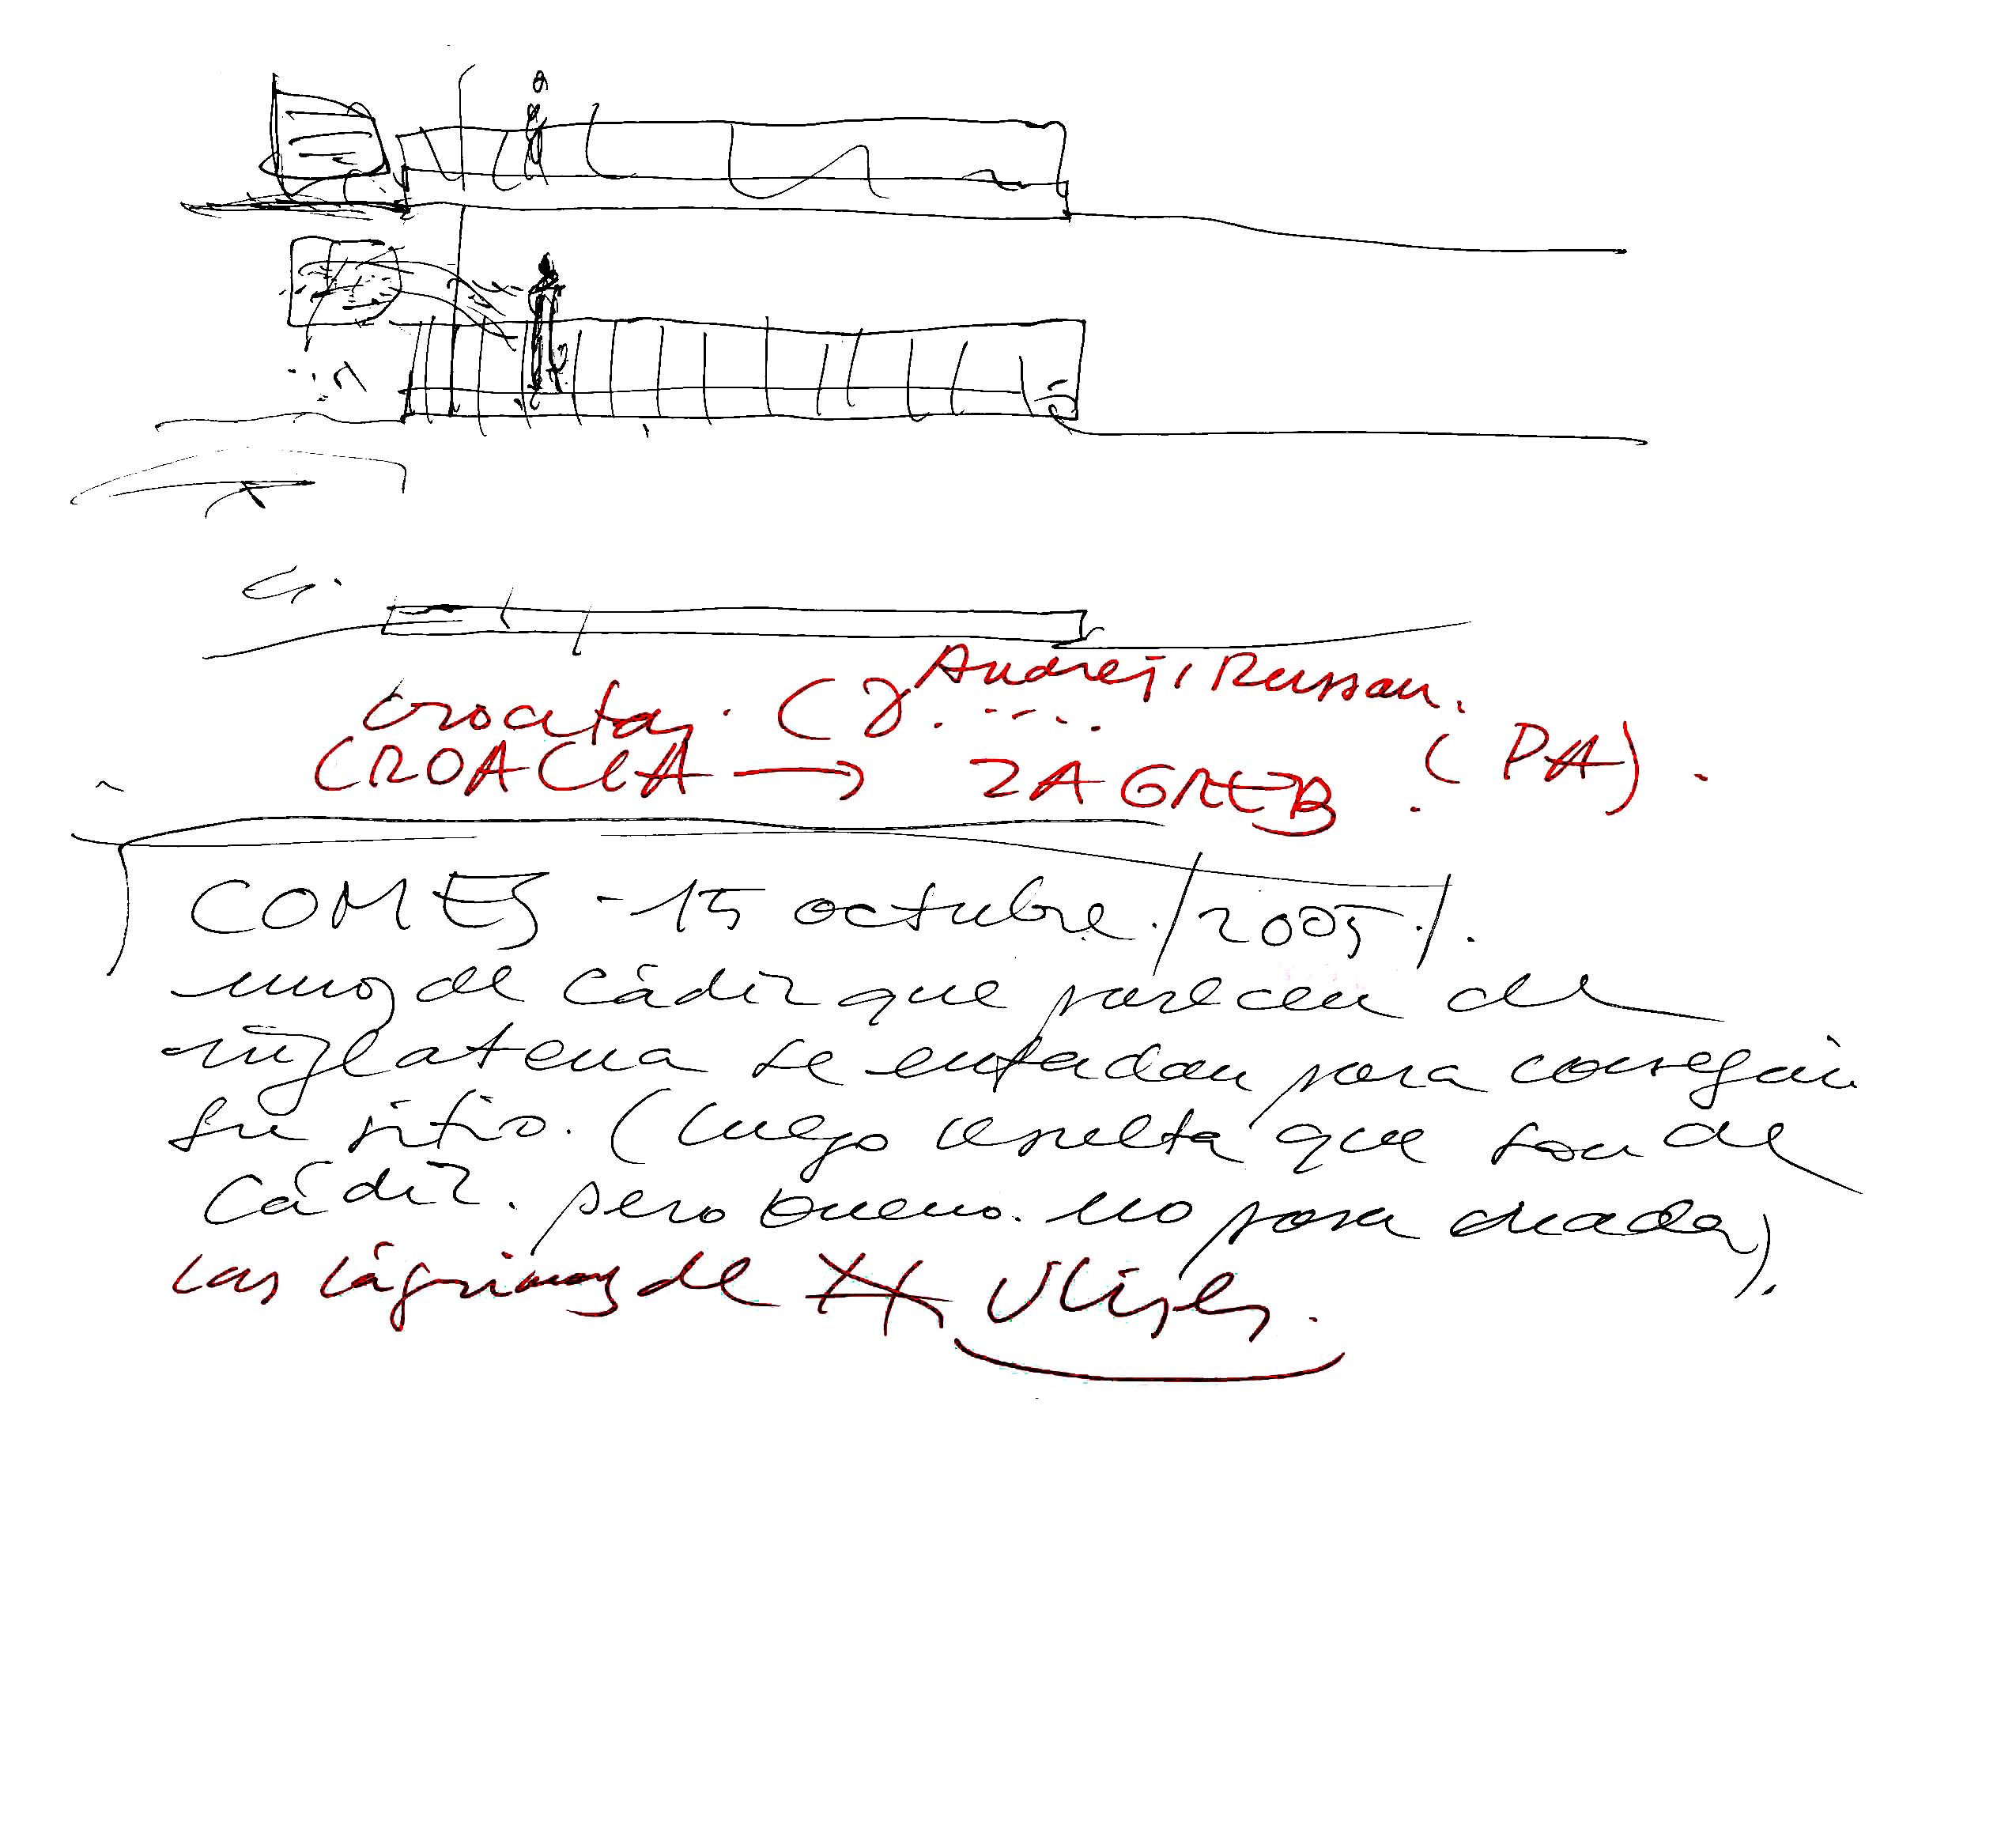 Andrej, Russan.
croatas. (J. .....
CROACIA → ZAGREB. (PA).
COMES - 15 octubre./2005/.
unos de Cádiz que parecen de
inglaterra se enfadan para conseguir
su sitio. (luego resulta que son de
Cádiz. pero bueno. no pasa nada).
Las lágrimas de Ulises.